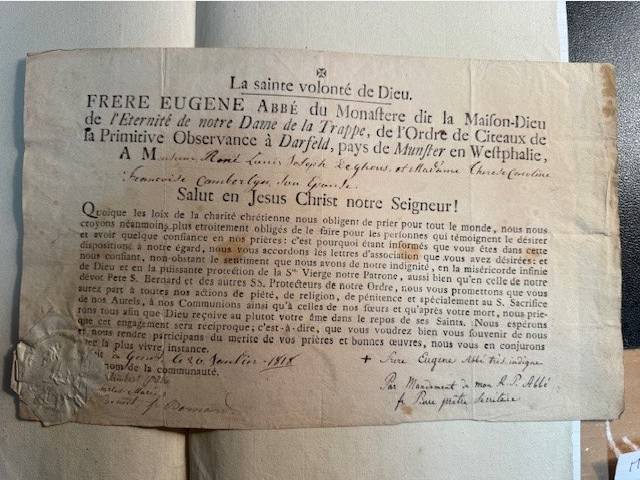 La sainte volonté de Dieu.
FRERE EUGENE ABBÉ du Monastere dit la Maison-Dieu
de l'Eternité de notre Dame de la Trappe, de l'Ordre de Citeaux de
la Primitive Observance à Darfeld, pays de Munster en Westphalie,
A Monsieur René Louis Joseph Deghous et Madame Therese Caroline
Françoise Camberlyn son Epouse
Salut en Jesus Christ notre Seigneur!
Quoique les loix de la charité chrétienne nous obligent de prier pour tout le monde, nous nous
croyons néanmoins plus etroitement obligés de le faire pour les personnes qui témoignent le désirer
et avoir quelque confiance en nos prières: c'est pourquoi étant informés que vous êtes dans cette
disposition à notre égard, nous vous accordons les lettres d'association que vous avez désirées: et
nous confiant, non-obstant le sentiment que nous avons de notre indignité, en la miséricorde infinie
de Dieu et en la puissante protection de la Ste Vierge notre Patrone, aussi bien qu'en celle de notre
dévot Pere S. Bernard et des autres SS. Protecteurs de notre Ordre, nous vous promettons que vous
aurez part à toutes nos actions de piété, de religion, de pénitence et spécialement au S. Sacrifice
de nos Autels, à nos Communions ainsi qu'à celles de nos sœurs et qu'après votre mort, nous prie-
rons tous afin que Dieu reçoive au plutot votre âme dans le repos de ses Saints. (Nous espérons
que cet engagement sera réciproque; c'est-à-dire, que vous voudrez bien vous souvenir de nous
et nous rendre participans du mérite de vos prières et bonnes œuvres, nous vous en conjurons
avec la plus vive instance.
à Gand, le 20 1818
+ frere Eugene Abbé très indigne
nom de la communauté.
Par Mandement de mon R. P. Abbé
f. Pierre prêtre Secrétaire